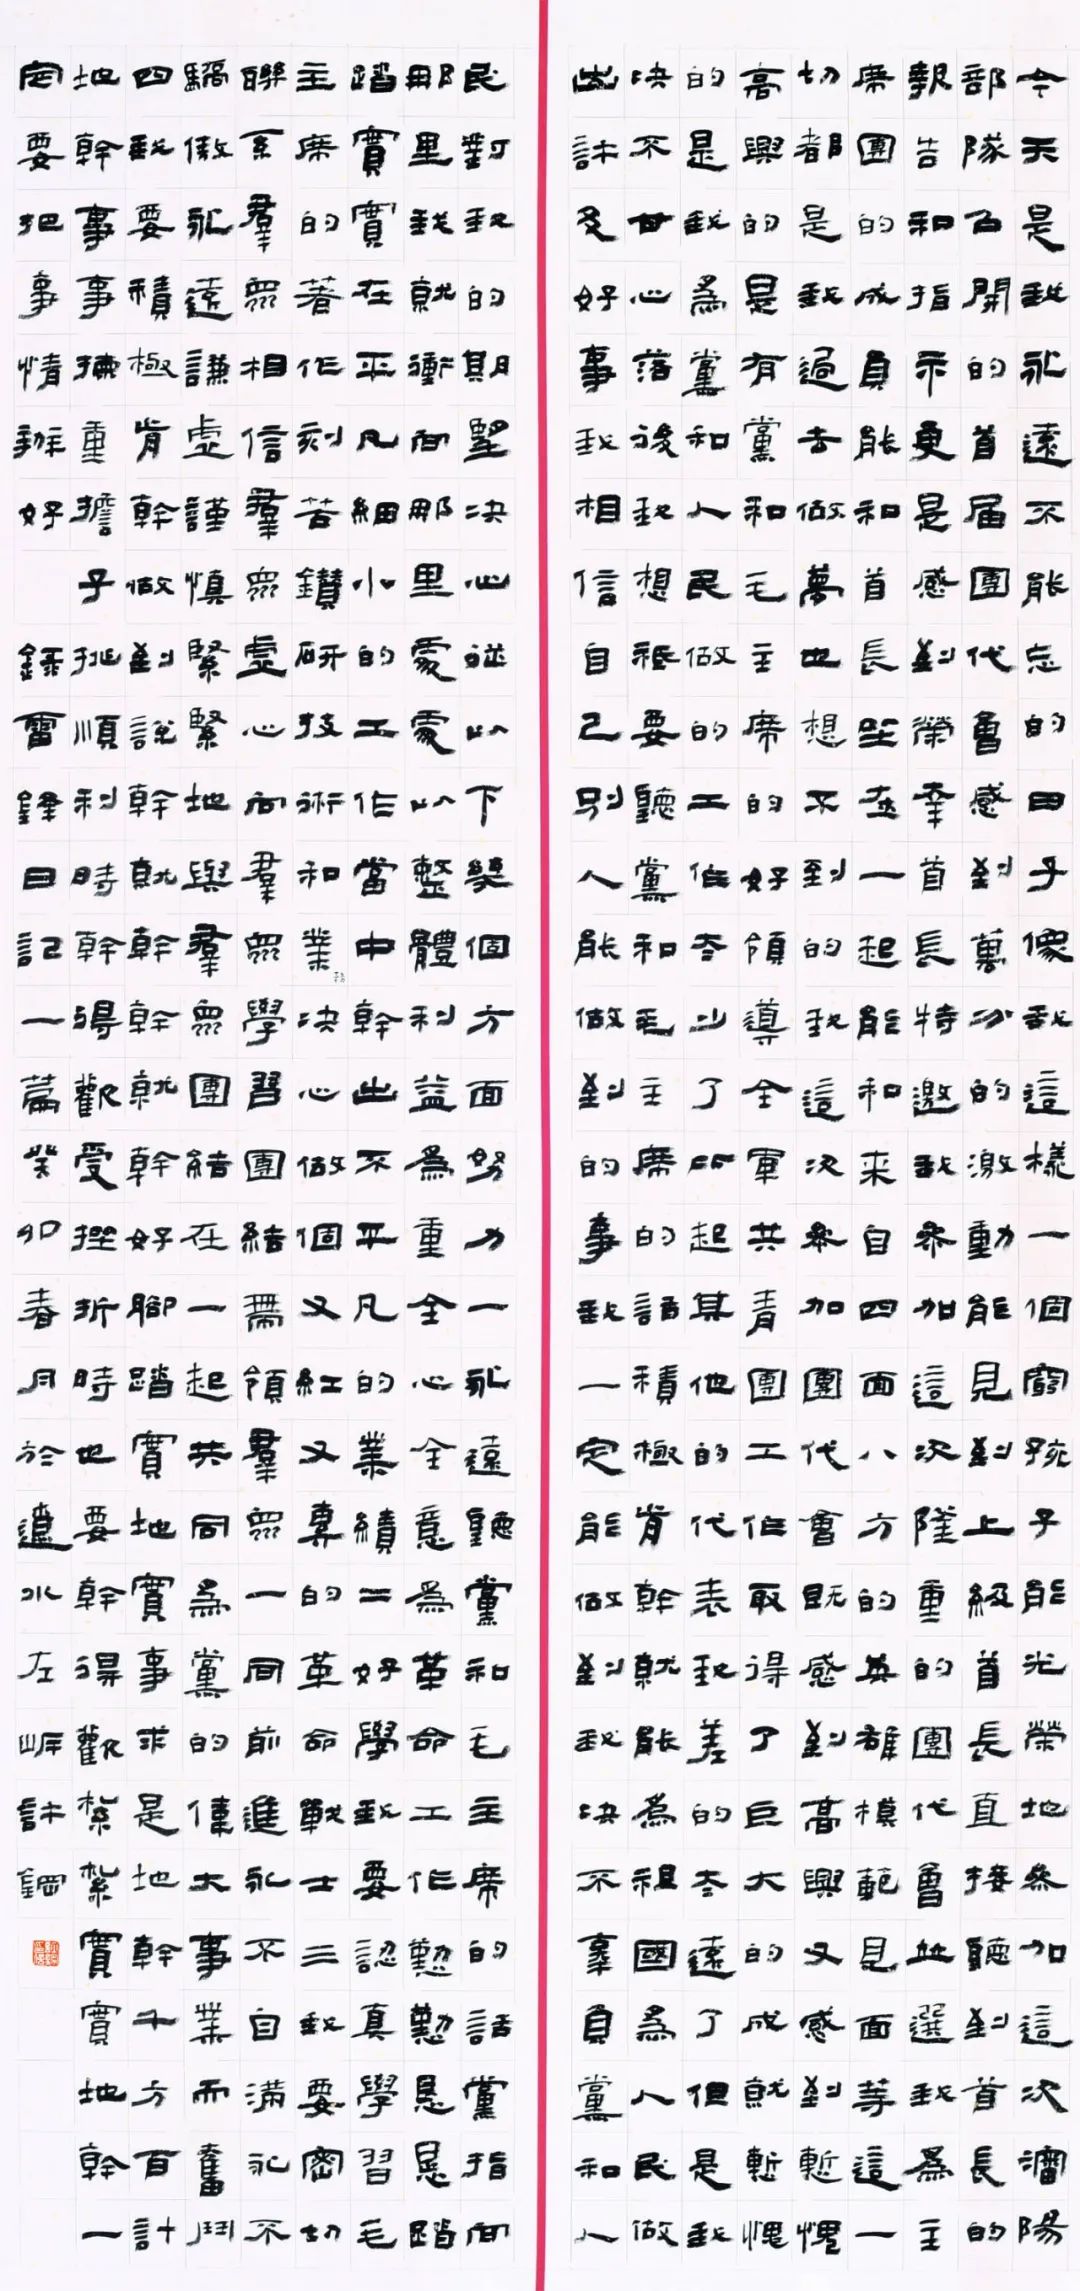 今天是我永遠不能忘的日子像我這樣一個窮孩子能光榮地參加這次瀋陽
部隊召開的首届團代會感到萬分的激動能見到上級首長直接聽到首長的
報告和指示更是感到榮幸首長特邀我參加這次隆重的團代會並選我為主
席團的成員能和首長坐在一起能和来自四面八方的英雄模範見面等這一
切都是我過去做夢也想不到的我這次參加團代會既感到高興又感到慙愧
高興的是有黨和毛主席的好領導全軍共青團工作取得了巨大的成就慙愧
的是我為黨和人民做的工作太少了比起其他的代表我差的太遠了但是我
决不甘心落後我想衹要聽黨和毛主席的話積極肯幹就能為祖國為人民做
出許多好事我相信自己别人能做到的事我一定能做到我决不辜負黨和人
民對我的期望决心從以下幾個方面努力一永遠聽黨和毛主席的話黨指向
那里我就衝向那里處處以整體利益為重全心全意為革命工作勤勤恳恳踏
踏實實在平凡細小的工作當中幹出不平凡的業績二好學我要認真學習毛
主席的著作刻苦鑽研技術和業務决心做個又紅又專的革命戰士三我要密切
聯系羣眾相信羣眾虚心向羣眾學習團結帶領羣眾一同前進永不自满永不
驕傲永遠謙虚謹慎緊緊地與羣眾團結在一起共同為黨的偉大事業而奮鬥
四我要積極肯幹做到說幹就幹幹就幹好脚踏實地實事求是地幹千方百計
地幹事事揀重擔子挑順利時幹得歡受挫折時也要幹得歡紮紮實實地幹一
定要把事情辦好 錄雷鋒日記一篇癸卯春月於遼水左岸許鋼